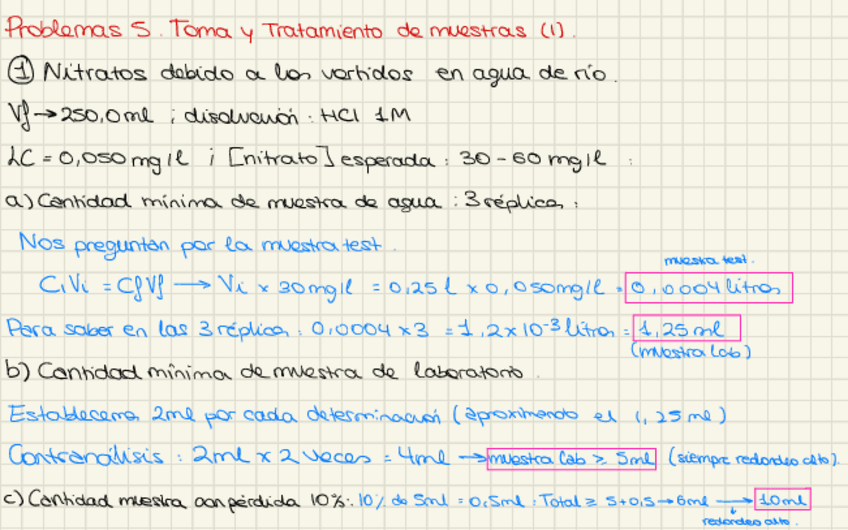 Problemas 5. Toma y Tratamiento de muestras (1).
① Nitratos debido a los vertidos en agua de río.
Vf → 250,0 ml ; disolución: HCl 1M
LC = 0,050 mg/l ; [nitrato] esperada: 30 - 60 mg/l :
a) Cantidad mínima de muestra de agua: 3 réplicas:
Nos preguntan por la muestra test.
muestra test.
CiVi = CfVf → Vi x 30 mg/l = 0,25 l x 0,050 mg/l = 0,0004 litros
Para saber en las 3 réplicas: 0,0004 x 3 = 1,2 x 10⁻³ litros = 1,25 ml
(muestra Lab)
b) Cantidad mínima de muestra de laboratorio.
Establecemos 2ml por cada determinación (aproximando el 1,25 ml)
Contranálisis: 2ml x 2 veces = 4ml → muestra Lab ≥ 5ml (siempre redondeo alto).
c) Cantidad muestra con pérdida 10%: 10% de 5ml = 0,5ml : Total ≥ 5+0,5 → 6ml → 10ml
redondeo alto.